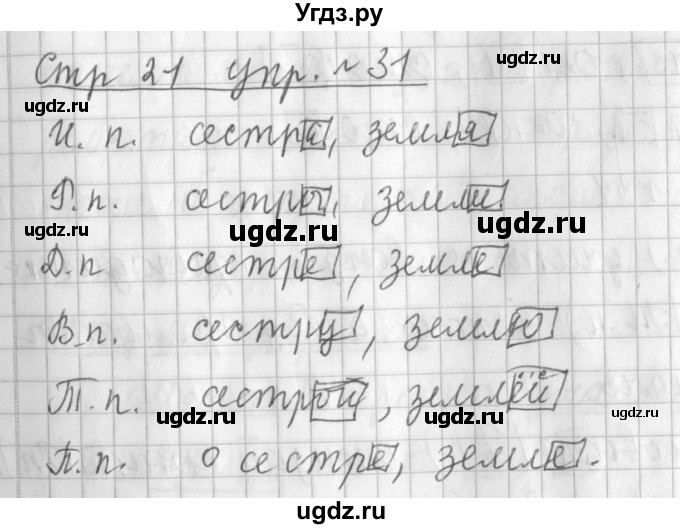 Угдз.ру
Стр 21 упр. № 31
ugdz.ru ugdz.ru
И. п. сестра, земля
ugdz.ru
Р. п. сестры, земли
ugdz.ru ugdz.ru ugdz.ru
Д. п. сестре, земле
В. п. сестру, землю
Т. п. сестрой, землёй
ugdz.ru ugdz.ru ugdz.ru
П. п. о сестре, земле.
ugdz.ru ugdz.ru
ugdz.ru